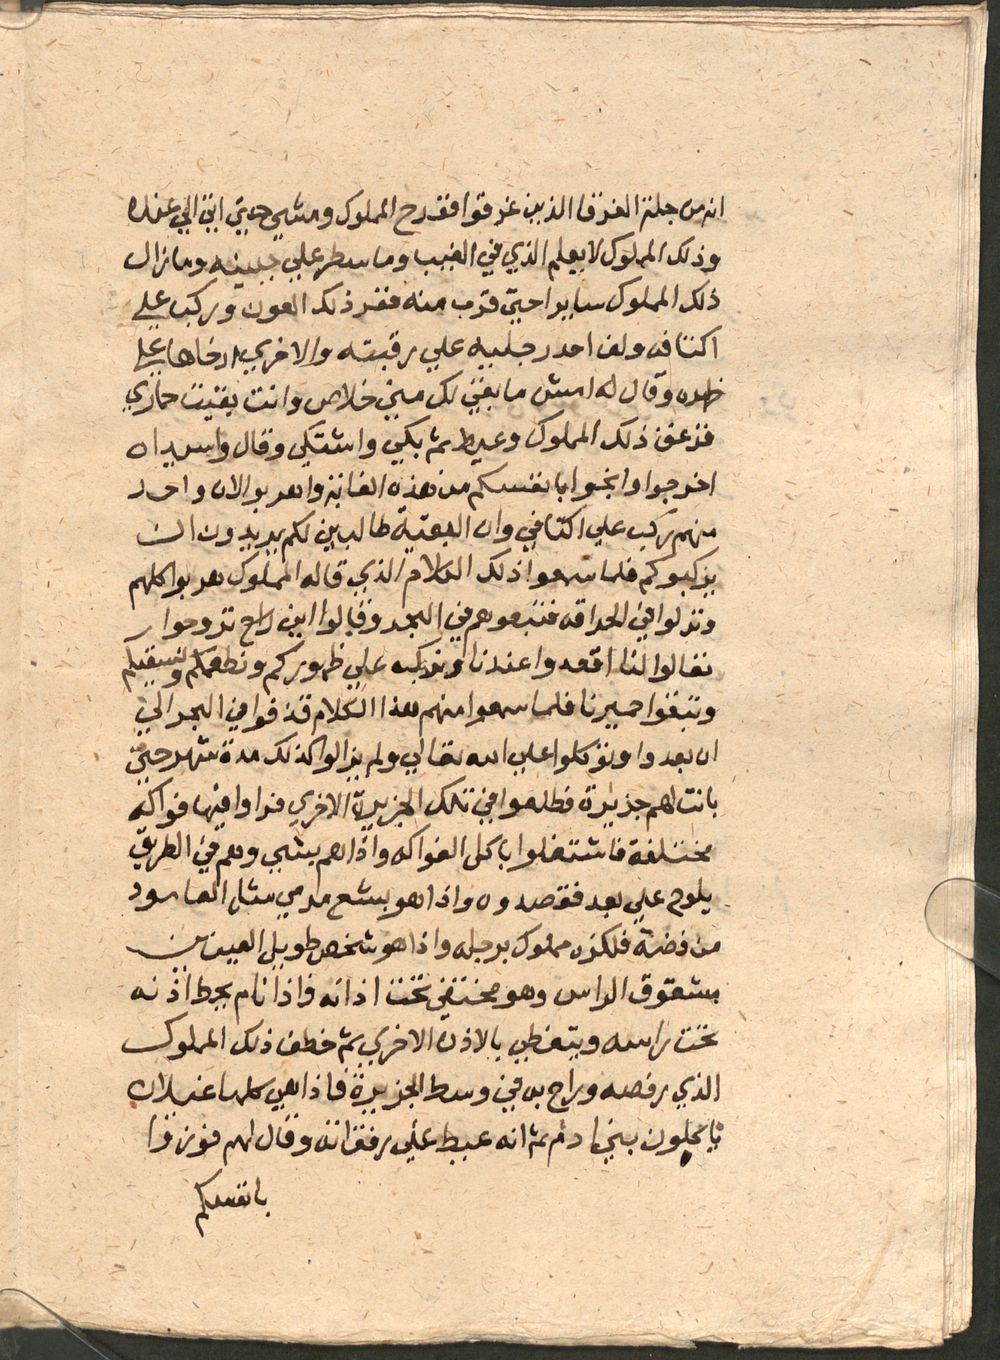 انه من جملة الغرقا الذين غرقوا ففرح المملوك ومشي حتي اتي الي عنده
وذلك المملوك لا يعلم الذي في الغيب وما سطر علي جبينه وما زال
ذلك المملوك سايرا حتي قرب منه فقفز ذلك العون وركب علي
اكتافه ولف احد رجليه علي رقبته والاخري ارخاها علي
ظهره وقال له امش ما بقي لك مني خلاص وانت بقيت حماري
فزعق ذلك المملوك وعيط ثم بكي واشتكي وقال واسيداه
اخرجوا وانجوا بانفسكم من هذه الغابة واهربوا لان واحد
منهم ركب علي اكتافي وان البقية طالبين لكم يريدون ان
يركبوكم فلما سمعوا ذلك الكلام الذي قاله المملوك هربوا كلهم
ونزلوا في الحراقه فتبعوهم في البحر وقالوا اين راح تروحوا
تعالوا لنا اقعدوا عندنا ونركب علي ظهوركم ونطعمكم ونسقيكم
وتبقوا حميرنا فلما سمعوا منهم هذا الكلام قذفوا في البحر الي
ان بعدوا وتوكلوا علي الله تعالي ولم يزالوا كذلك مدة شهر حتي
بانت لهم جزيرة فطلعوا في تلك الجزيرة الاخري فراوا فيها فواكه
مختلفة فاشتغلوا باكل الفواكه واذا هم بشي وهم في الطريق
يلوح علي بعد فقصدوه واذا هو بشع مرمي مثل العامود
من فضة فلكزه مملوك برجله واذا هو شخص طويل العينين
مشقوق الراس وهو مختفي تحت اذانه فاذا نام يحط اذنه
تحت راسه ويتغطي بالاذن الاخري ثم خطف ذلك المملوك
الذي رفصه وراح به في وسط الجزيرة فاذا هي كلها غيلان
ياكلون بني ادم ثم انه عيط علي رفقاته وقال لهم فوزوا
بانفسكم